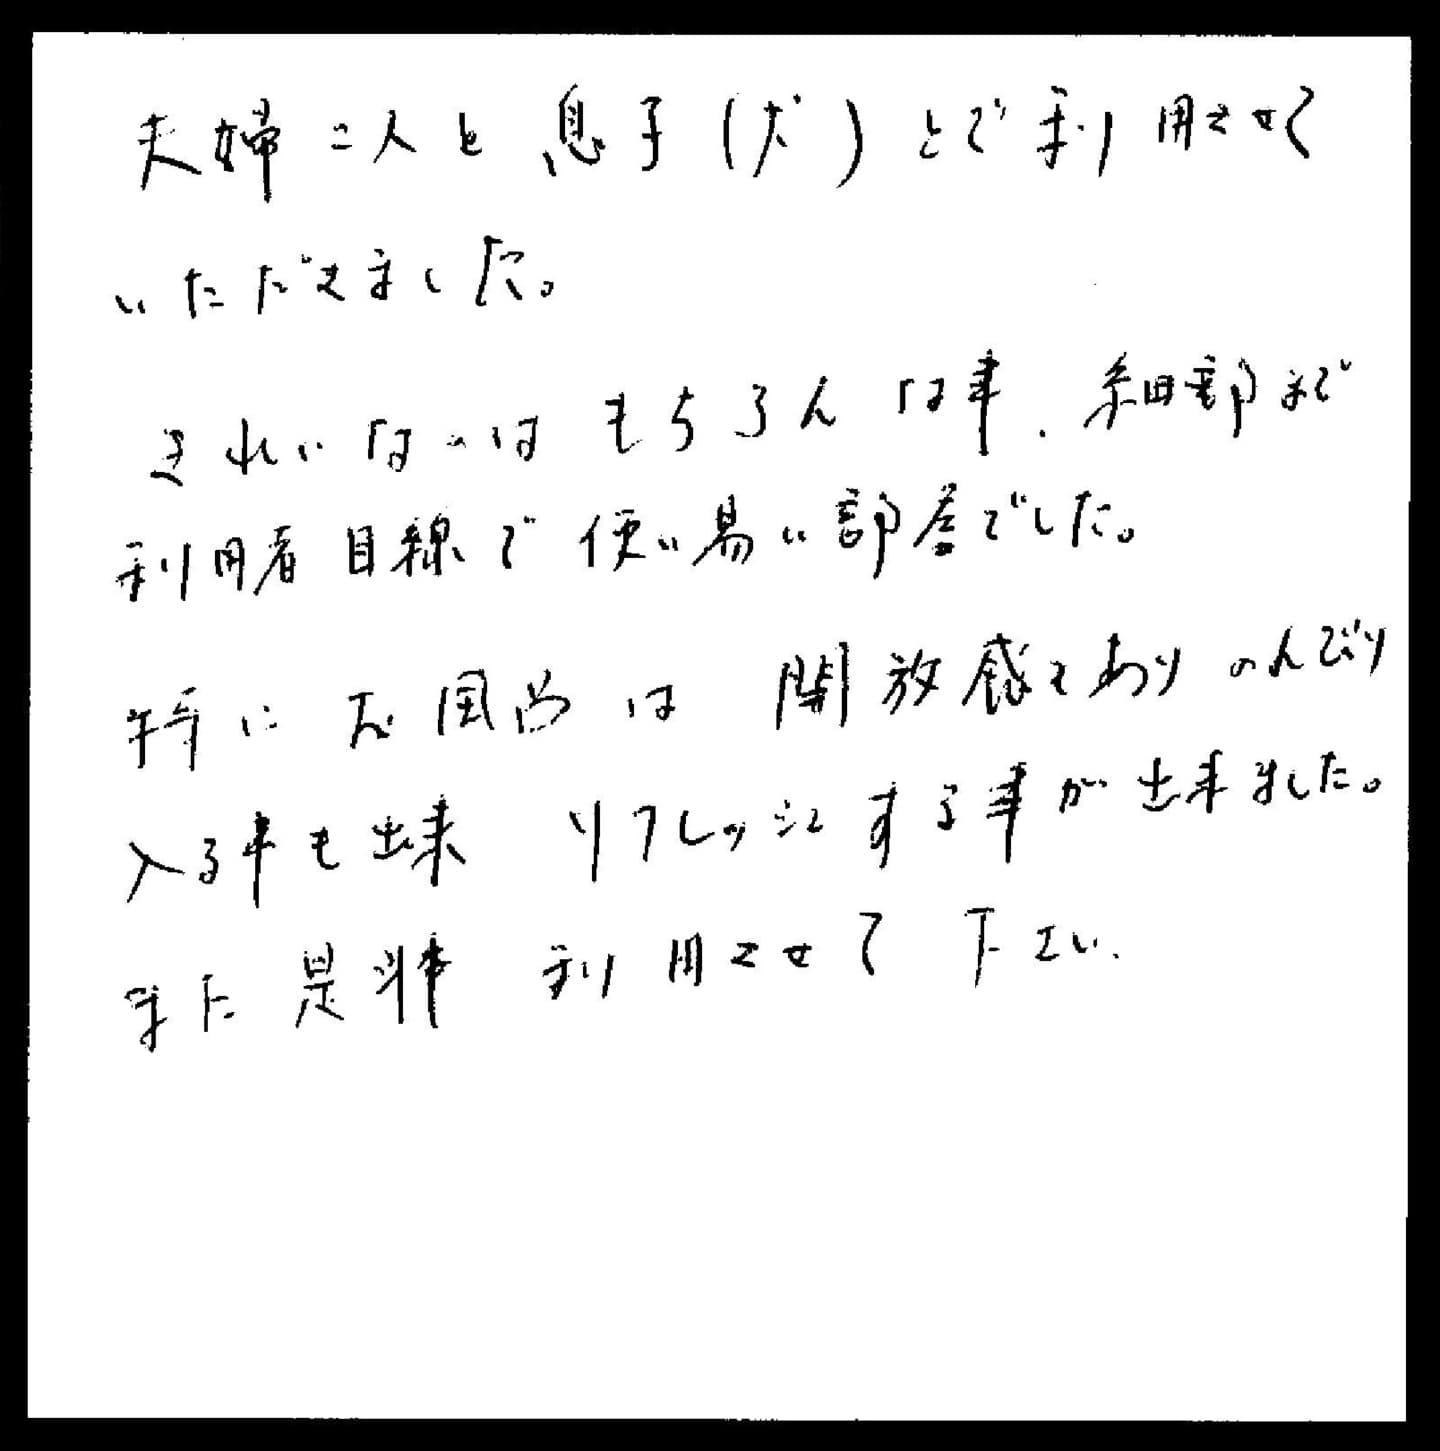 夫婦二人と息子(犬)とで利用させて
いただきました。
きれいなのはもちろんな事、細部まで
利用者目線で使い易い部屋でした。
特にお風呂は開放感もあり のんびり
入る事も出来 リフレッシュする事が出来ました。
また是非 利用させて下さい.